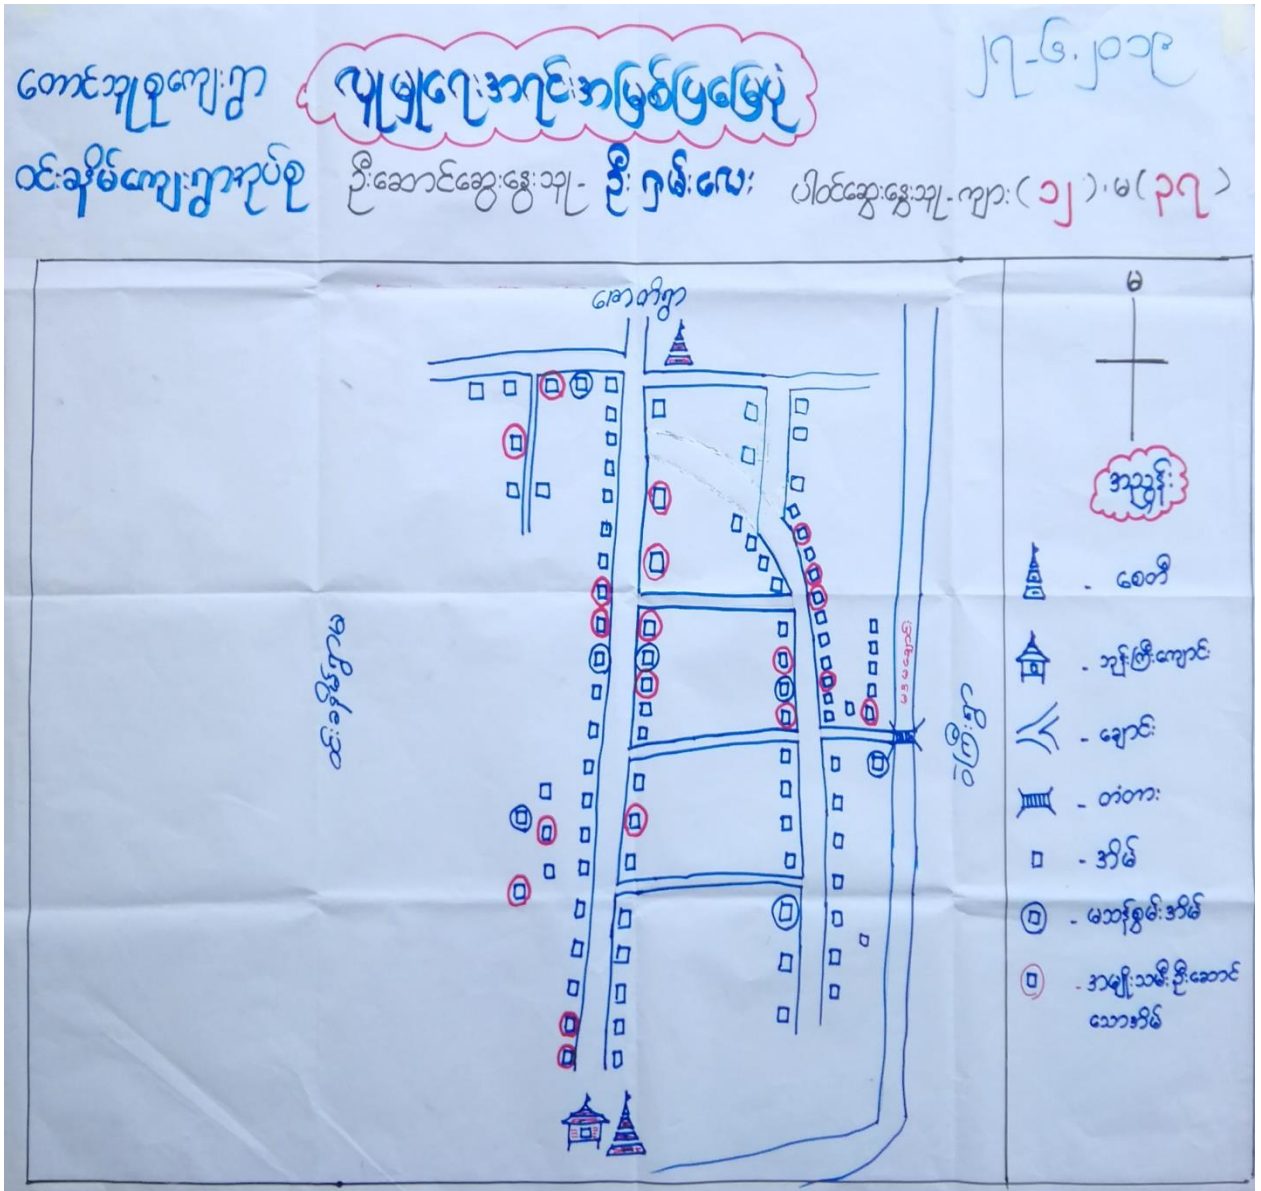 တောင်သူစုကျေးရွာ
လူမှုရေးအရင်းအမြစ်ပြမြေပုံ
၂၇-၆-၂၀၁၉
ဝင်းခနိမ်ကျေးရွာအုပ်စု
ဦးဆောင်ဆွေးနွေးသူ- ဦးရှမ်းလေး
ပါဝင်ဆွေးနွေးသူ-ကျား(၁၂)၊မ(၃၇)
မ
အညွှန်း
- စေတီ
- ဘုန်းကြီးကျောင်း
- ချောင်း
- တံတား
- အိမ်
- မသန်စွမ်းအိမ်
- အမျိုးသမီးဦးဆောင်
သောအိမ်